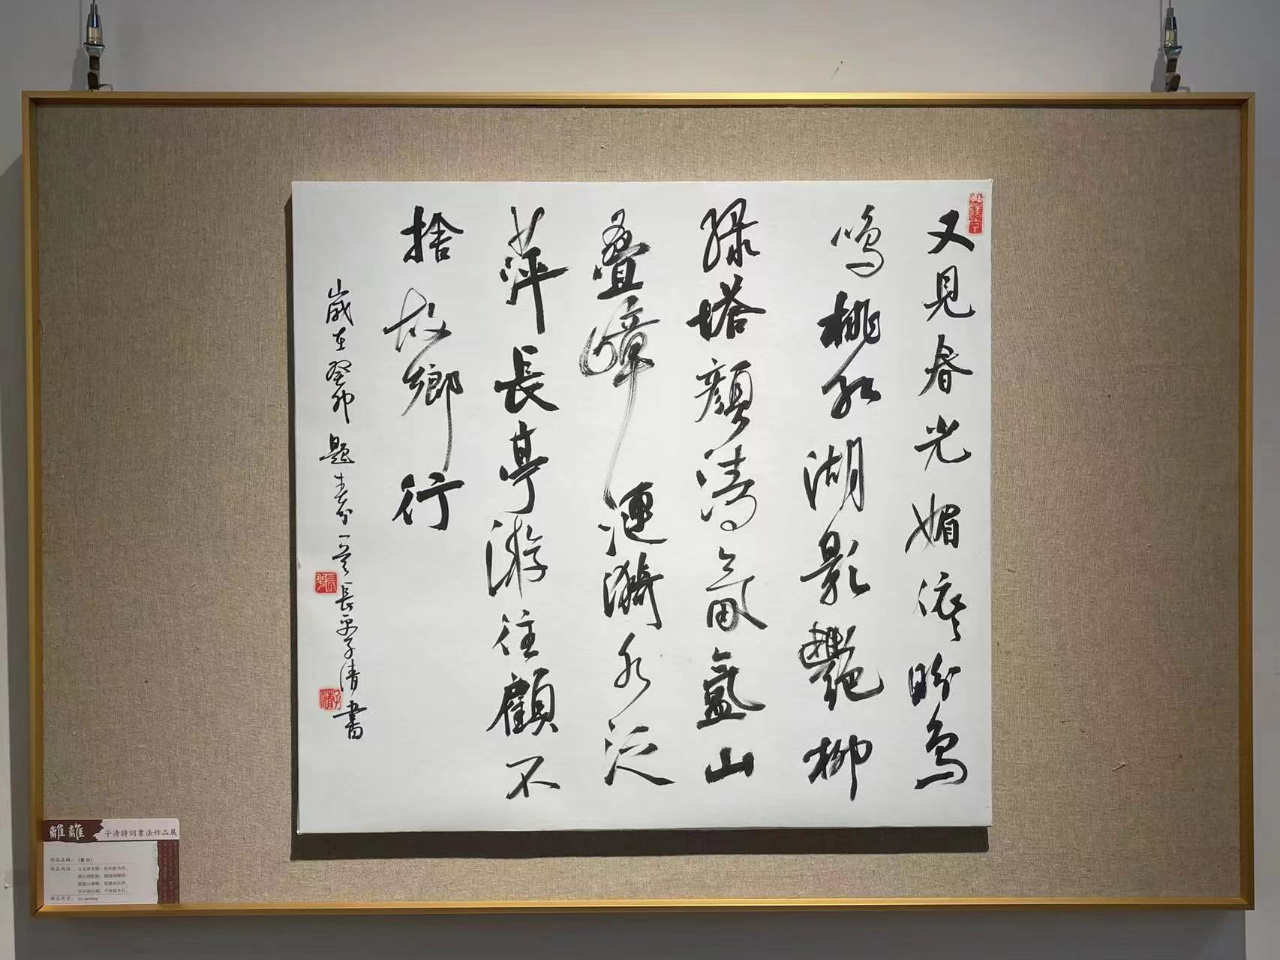 又見春光媚依盼鳥
鳴桃紅湖影艷柳
綠塔顏清氤氳山
疊嶂漣漪水泛
萍長亭游往顧不
捨故鄉行
歲在癸卯題春分一首長平子清書
子清詩詞書法作品展